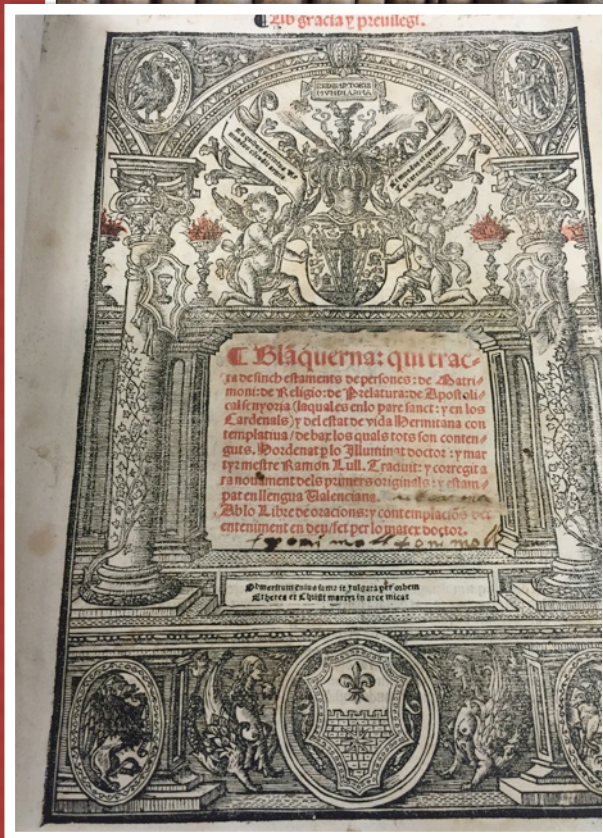 Ab gracia y preuilegi.
REDEMPTORIS
MVNDI ARMA
C Blāquerna: qui trac-
ta de sinch estaments de persones: de Matri-
moni: de Religio: de Prelatura: de Apostoli-
cal senyoria (la qual es en lo pare sanct: y en los
Cardenals) y del estat de vida Hermitana con
templatiua / debax los quals tots son conten-
guts. Hordenat p lo Illuminat doctor: y mar
tyr mestre Ramon Lull. Traduit: y corregit a
ra nouament dels primers originals: y estam-
pat en llengua Valenciana.
Ab lo Libre de oracions: y contemplaciōs del
enteniment en deu / fet per lo mateix doctor.
cuius fama it vulgata per orbem
Etherea et Christi martyr in arce micat